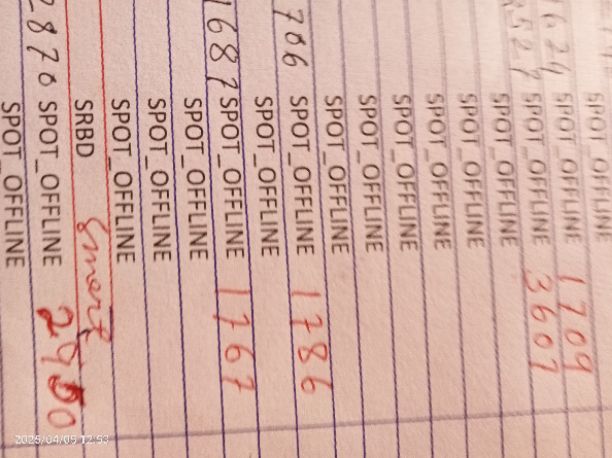 SPOT_OFFLINE
1629 SPOT_OFFLINE 1709
527 SPOT_OFFLINE 3607
SPOT_OFFLINE
SPOT_OFFLINE
SPOT_OFFLINE
SPOT_OFFLINE
SPOT_OFFLINE
SPOT_OFFLINE
706 SPOT_OFFLINE 1786
SPOT_OFFLINE
1687 SPOT_OFFLINE 1767
SPOT_OFFLINE
SPOT_OFFLINE
SPOT_OFFLINE
SRBD Smart
2870 SPOT_OFFLINE 2950
SPOT_OFFLINE
2025/04/05 12:53